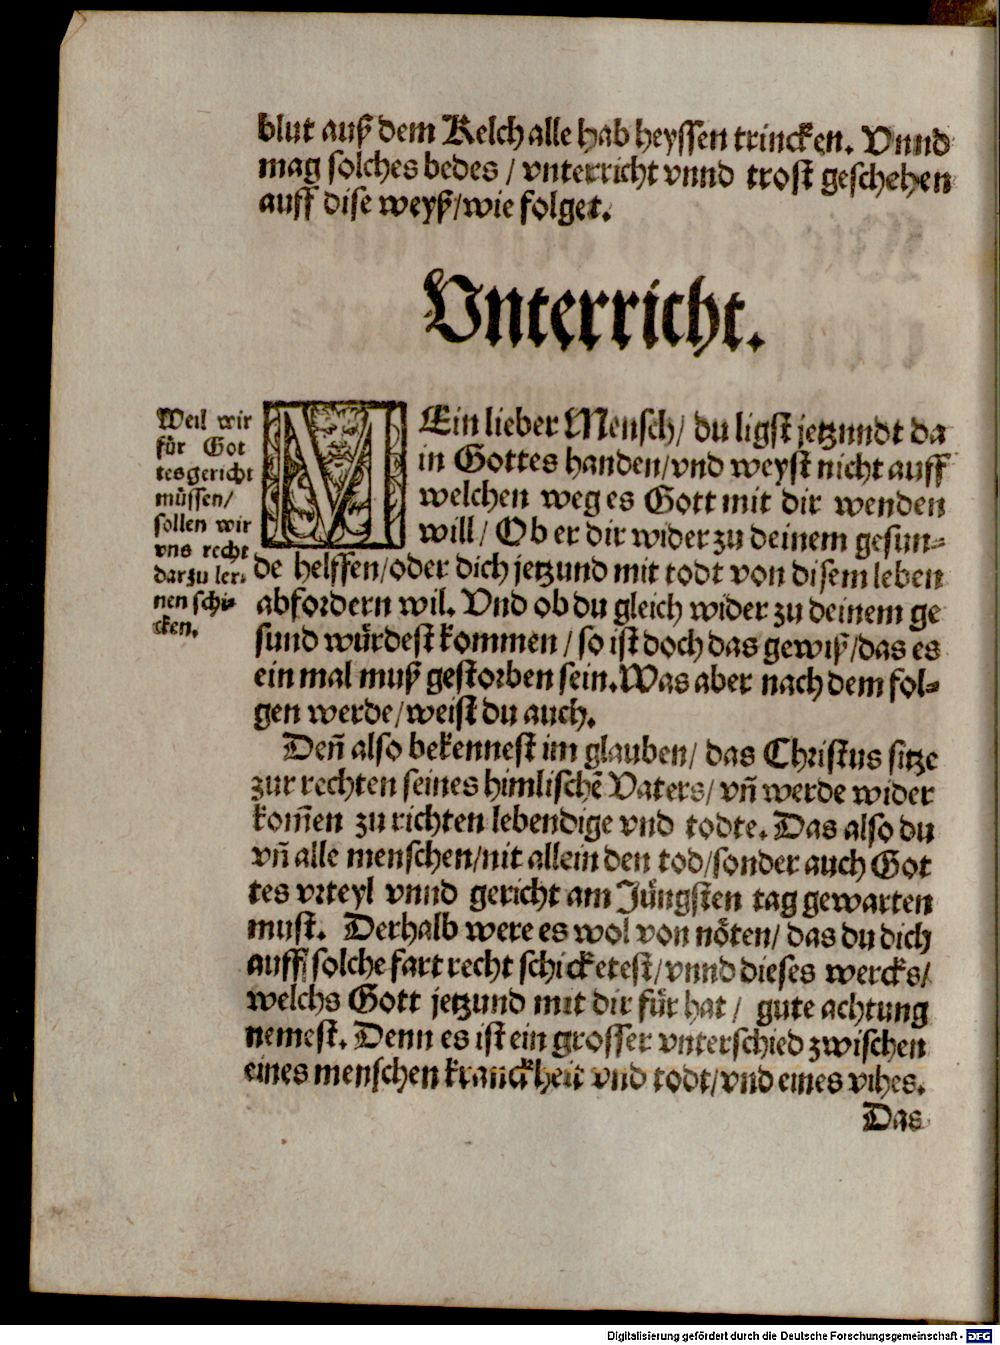 blut auß dem Kelch alle hab heyssen trincken. Vnnd
mag solches bedes / vnterricht vnnd trost geschehen
auff dise weyß/wie folget.
Vnterricht.
Weil wir
für Got
tes gericht
müssen/
sollen wir
vns recht
darzu ler-
nen schi-
cken.
MEin lieber Mensch/ du ligst jetzundt da
in Gottes handen/vnd weyst nicht auff
welchen weg es Gott mit dir wenden
will/ Ob er dir wider zu deinem gesun-
de helffen/oder dich jetzund mit todt von disem leben
abfordern wil. Vnd ob du gleich wider zu deinem ge
sund würdest kommen / so ist doch das gewiß/das es
ein mal muß gestorben sein. Was aber nach dem fol-
gen werde/weist du auch.
Deñ also bekennest im glauben/ das Christus sitze
zur rechten seines himlischẽ Vaters/ vñ werde wider
kom̃en zu richten lebendige vnd todte. Das also du
vñ alle menschen/nit allein den tod/sonder auch Got
tes vrteyl vnnd gericht am Jüngsten tag gewarten
must. Derhalb were es wol von nöten/ das du dich
auff solche fart recht schicketest/vnnd dieses wercks/
welchs Gott jetzund mit dir für hat / gute achtung
nemest. Denn es ist ein grosser vnterschied zwischen
eines menschen kranckheit vnd todt/vnd eines vihes.
Das
Digitalisierung gefördert durch die Deutsche Forschungsgemeinschaft - DFG